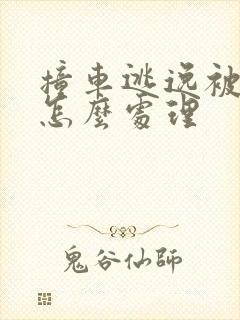 撞車逃逸被
怎麼處理
鬼谷仙師